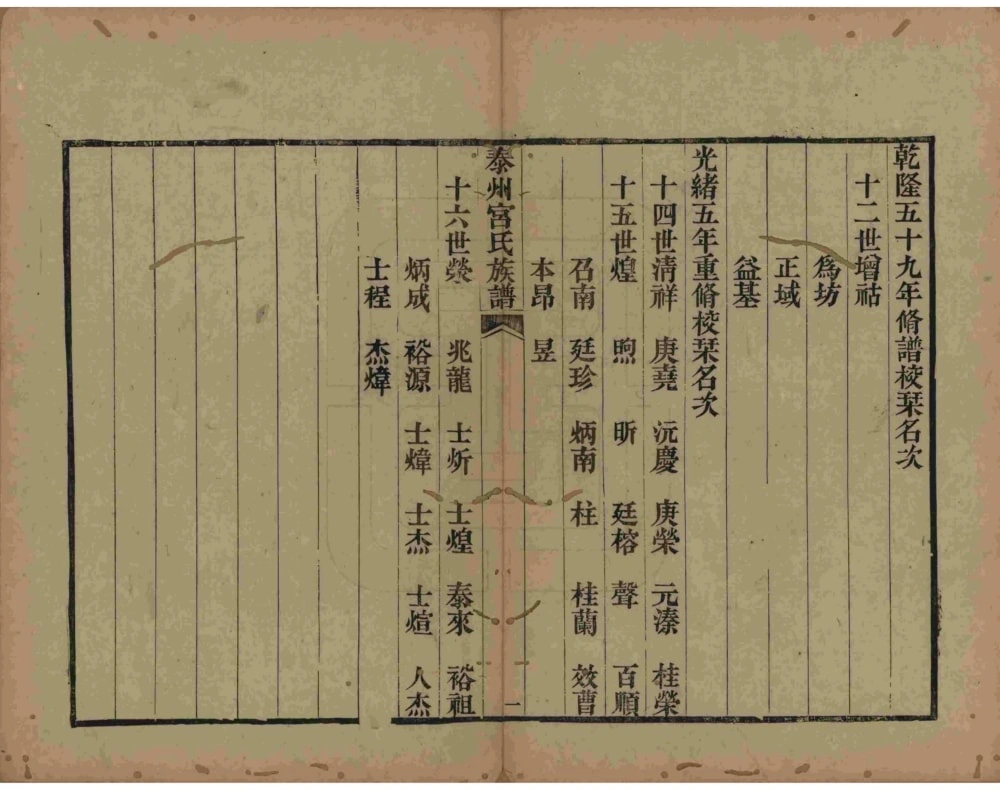 乾隆五十九年脩譜校栞名次
十二世增祜
爲坊
正域
益基
光緒五年重脩校栞名次
十四世淸祥　庚堯　沅慶　庚榮　元溱　桂榮
十五世煌　煦　昕　廷榕　聲　百順
召南　廷珍　炳南　柱　桂蘭　效曹
本昂　昱
泰州宮氏族譜　一
十六世榮　兆龍　士炘　士煌　泰來　裕祖
炳成　裕源　士煒　士杰　士煊　人杰
士程　杰煒